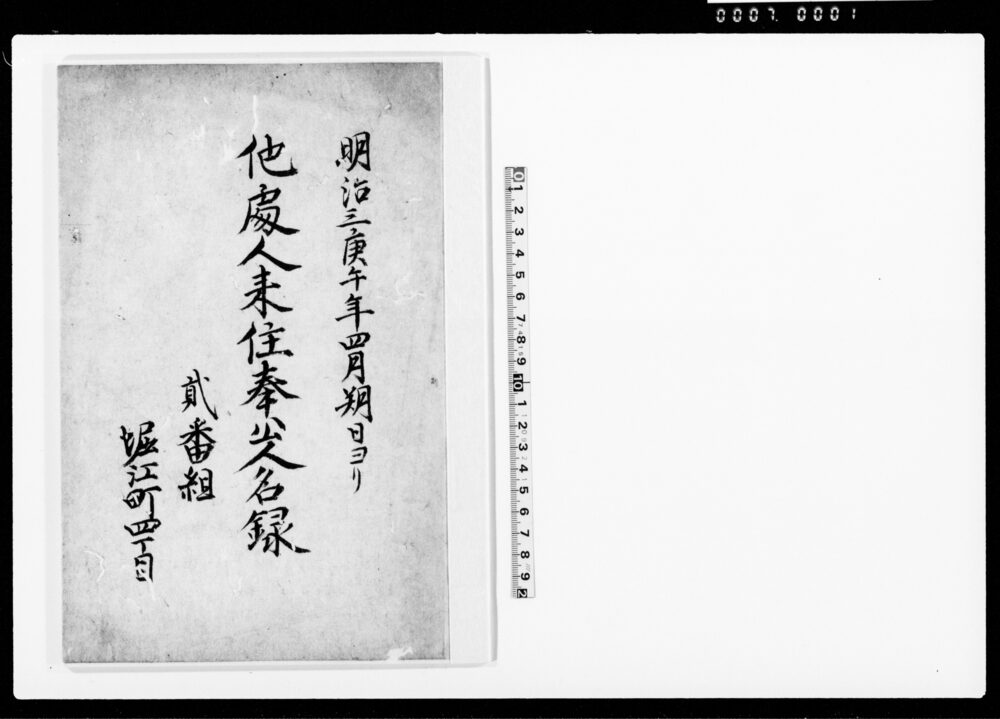 0007 0001
明治三庚午年四月朔日ヨリ
他處人来住奉公人名録
貳番組
堀江町四丁目
0 1 2 3 4 5 6 7 8 9 10 1 2 3 4 5 6 7 8 9 2